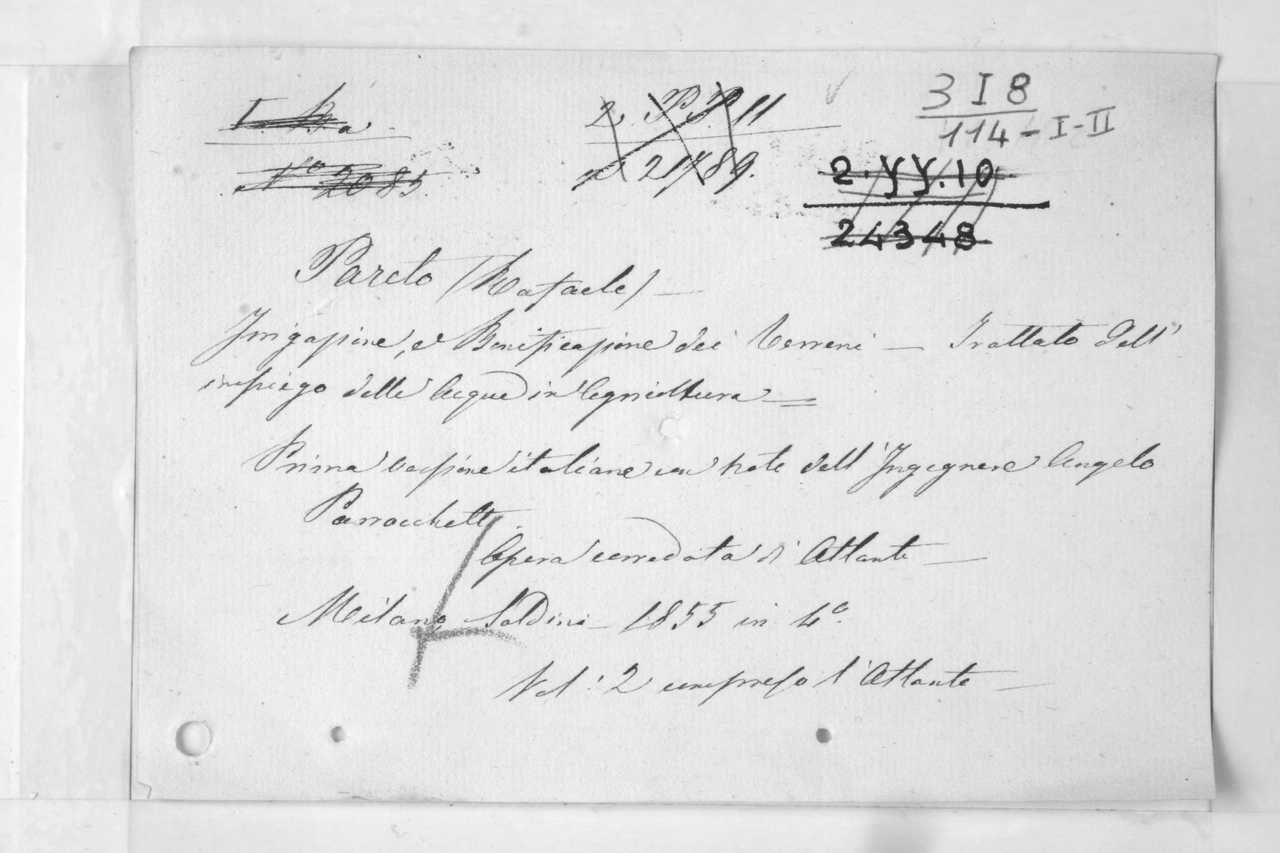 3 I 8
114 - I-II
2. P.P. 11
2. YY. 10
N° 2085
21789.
24348
Pareto (Rafaele) —
Irrigazione, e Bonificazione dei Terreni — Trattato dell'
impiego delle Acque in Agricoltura =
Prima versione italiana con note dell'Ingegnere Angelo
Parrocchetti.
Opera corredata d'Atlante —
Milano Saldini - 1855 in 4°.
Vol: 2 compreso l'Atlante —